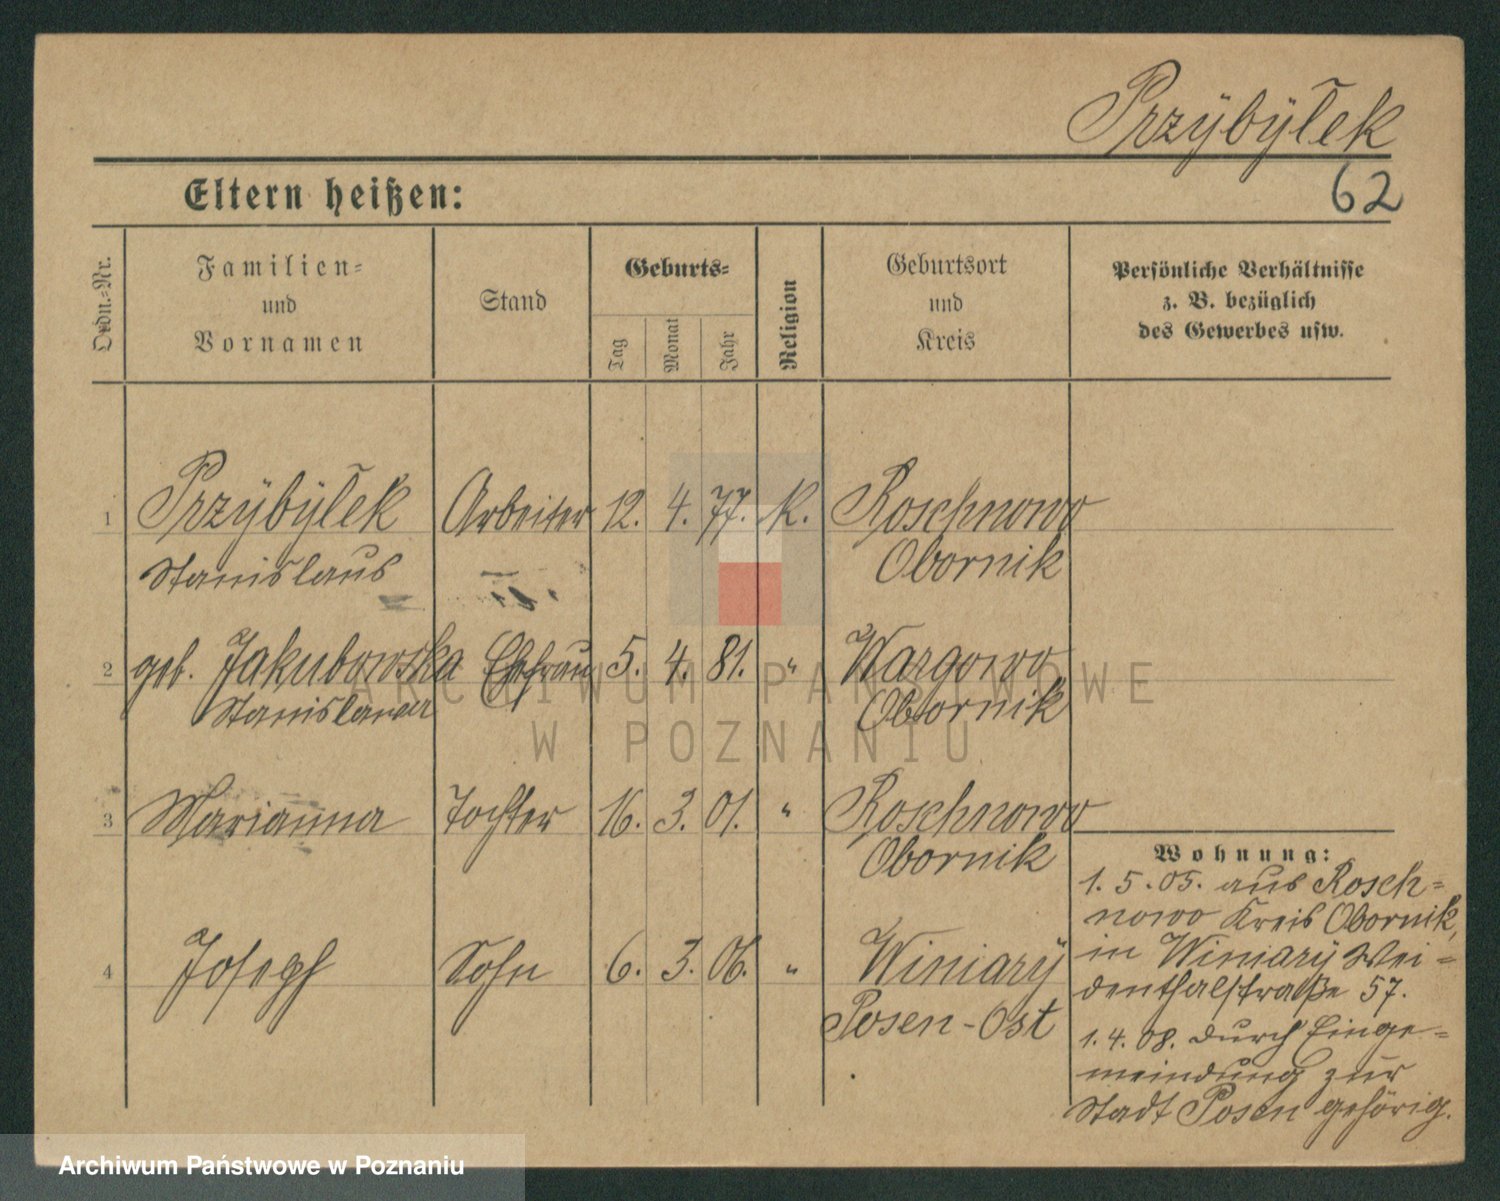 Przÿbÿłek
62
Eltern heißen:
Ordn.-Nr.
Familien-
und
Vornamen
Stand
Geburts-
Tag
Monat
Jahr
Religion
Geburtsort
und
Kreis
Persönliche Verhältnisse
z. B. bezüglich
des Gewerbes usw.
1 Przÿbÿłek Arbeiter 12. 4. 77. K. Roschnowo
Stanislaus Obornik
2 geb. Jakubowska Ehefrau 5. 4. 81. " Wargowo
Stanislawa Obornik
3 Marianna Tochter 16. 3. 01. " Roschnowo
Obornik
4 Joseph Sohn 6. 3. 06. " Winiarÿ
Posen-Ost
Wohnung:
1. 5. 05. aus Rosch=
nowo Kreis Obornik,
in Winiarÿ Wei=
denthalstraße 57.
1. 4. 08. durch Einge=
meindung zur
Stadt Posen gehörig.
ARCHIWUM PAŃSTWOWE
W POZNANIU
Archiwum Państwowe w Poznaniu